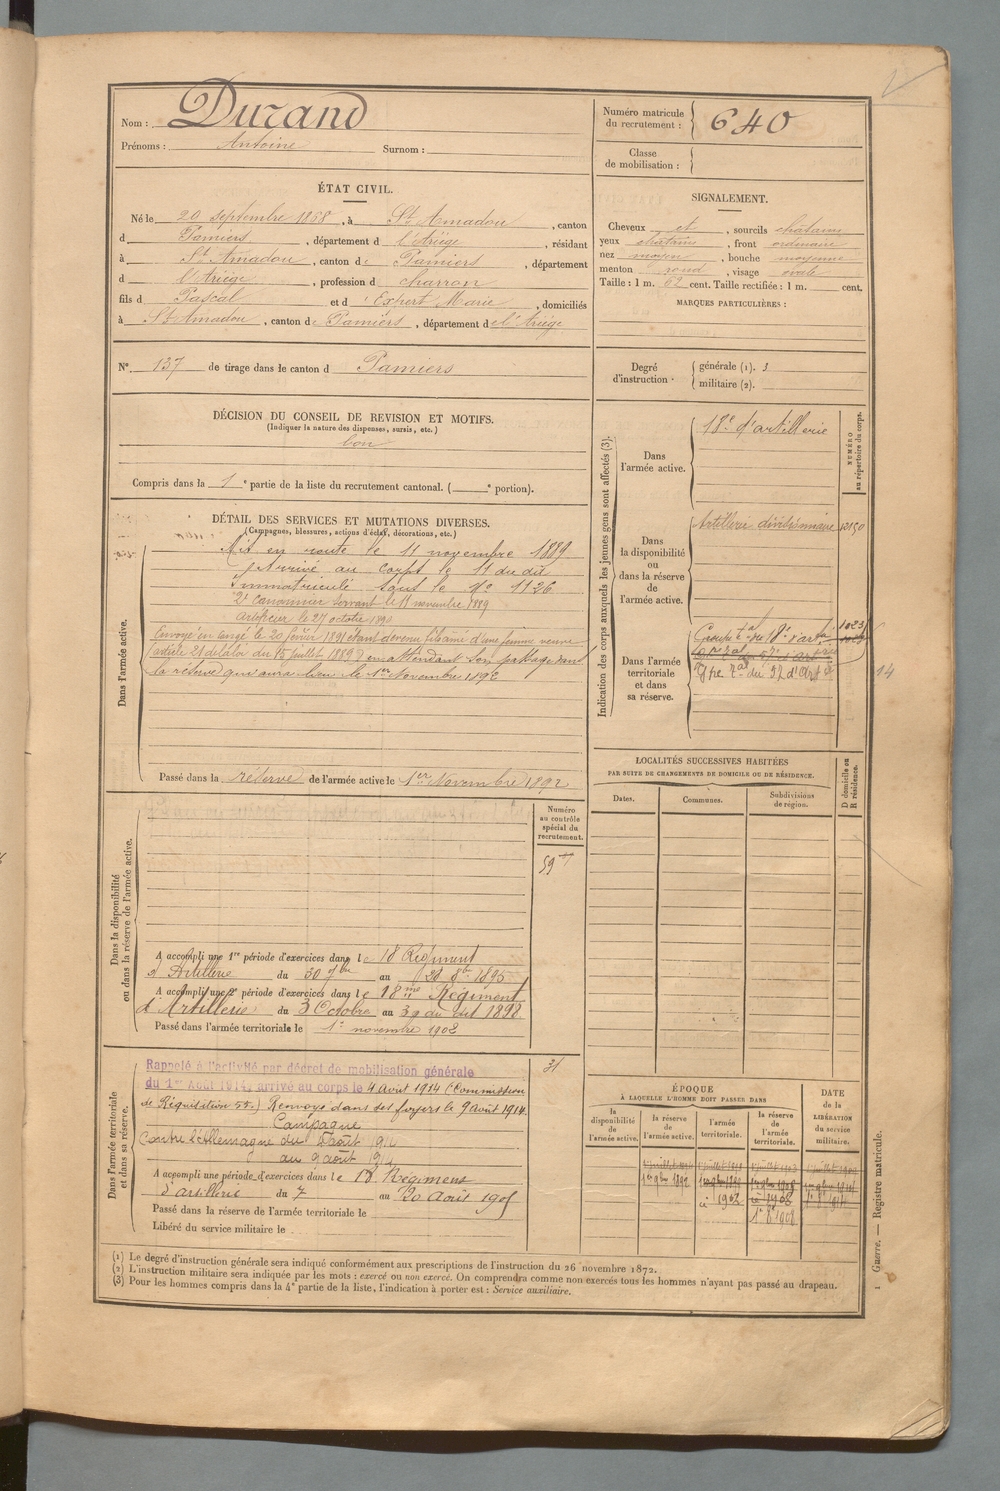 Nom : Durand
Prénoms : Antoine Surnom :
Numéro matricule du recrutement : 640
Classe de mobilisation :
ÉTAT CIVIL.
Né le 20 septembre 1868, à St Amadou, canton
d Pamiers, département d l'Ariège, résidant
à St Amadou, canton de Pamiers, département
d l'Ariège, profession d charron
fils d Pascal et d Expert Marie, domiciliés
à St Amadou, canton de Pamiers, département de l'Ariège
SIGNALEMENT.
Cheveux et, sourcils châtains
yeux châtains, front ordinaire
nez moyen, bouche moyenne
menton rond, visage ovale
Taille : 1 m. 62 cent. Taille rectifiée : 1 m. cent.
MARQUES PARTICULIÈRES :
N° 137 de tirage dans le canton d Pamiers
Degré d'instruction
générale (1). 3
militaire (2).
DÉCISION DU CONSEIL DE REVISION ET MOTIFS.
(Indiquer la nature des dispenses, sursis, etc.)
bon
Compris dans la 1e partie de la liste du recrutement cantonal. ( e portion).
DÉTAIL DES SERVICES ET MUTATIONS DIVERSES.
(Campagnes, blessures, actions d'éclat, décorations, etc.)
Dans l'armée active.
Mis en route le 11 novembre 1889
Arrivé au corps le 11 du dit
Immatriculé sous le No 1126
2e Canonnier servant le 11 novembre 1889
Artificier le 27 octobre
Envoyé en congé le 20 février 1891 étant devenu fils aîné d'une femme veuve
(article 21 de la loi du 15 juillet 1889) en attendant son passage dans
la réserve qui aura lieu le 1er Novembre 1892
Passé dans la réserve de l'armée active le 1er Novembre 1892
Indication des corps auxquels les jeunes gens sont affectés (3).
NUMÉRO au répertoire du corps.
Dans l'armée active.
18e d'artillerie
Dans la disponibilité ou dans la réserve de l'armée active.
Artillerie divisionnaire
Dans l'armée territoriale et dans sa réserve.
Groupe tal du 18e d'artie 1023
14
LOCALITÉS SUCCESSIVES HABITÉES
PAR SUITE DE CHANGEMENTS DE DOMICILE OU DE RÉSIDENCE.
D domicile ou R résidence.
Dates. Communes. Subdivisions de région.
Dans la disponibilité ou dans la réserve de l'armée active.
Numéro au contrôle spécial du recrutement.
59
A accompli une 1re période d'exercices dans le 18 Régiment
d'Artillerie du 30 7bre au 8bre 1895
A accompli une 2e période d'exercices dans le 18me Régiment
d'Artillerie du 3 Octobre au 30 du dit 1898
Passé dans l'armée territoriale le 1er novembre 1902
Dans l'armée territoriale et dans sa réserve.
31
Rappelé à l'activité par décret de mobilisation générale
du 1er Août 1914, arrivé au corps le 4 août 1914 (Commission
de Réquisition 55.) Renvoyé dans ses foyers le 9 août 1914.
Campagne
Contre l'Allemagne du août 1914
au 9 août 1914
A accompli une période d'exercices dans le 18 Régiment
d'artillerie du 7 au 20 Août 1905
Passé dans la réserve de l'armée territoriale le
Libéré du service militaire le
ÉPOQUE
À LAQUELLE L'HOMME DOIT PASSER DANS
DATE de la LIBÉRATION du service militaire.
la disponibilité de l'armée active.
la réserve de l'armée active.
l'armée territoriale.
la réserve de l'armée territoriale.
1er 9bre 1892
1902
1908
(1) Le degré d'instruction générale sera indiqué conformément aux prescriptions de l'instruction du 26 novembre 1872.
(2) L'instruction militaire sera indiquée par les mots : exercé ou non exercé. On comprendra comme non exercés tous les hommes n'ayant pas passé au drapeau.
(3) Pour les hommes compris dans la 4e partie de la liste, l'indication à porter est : Service auxiliaire.
1 Guerre. — Registre matricule.